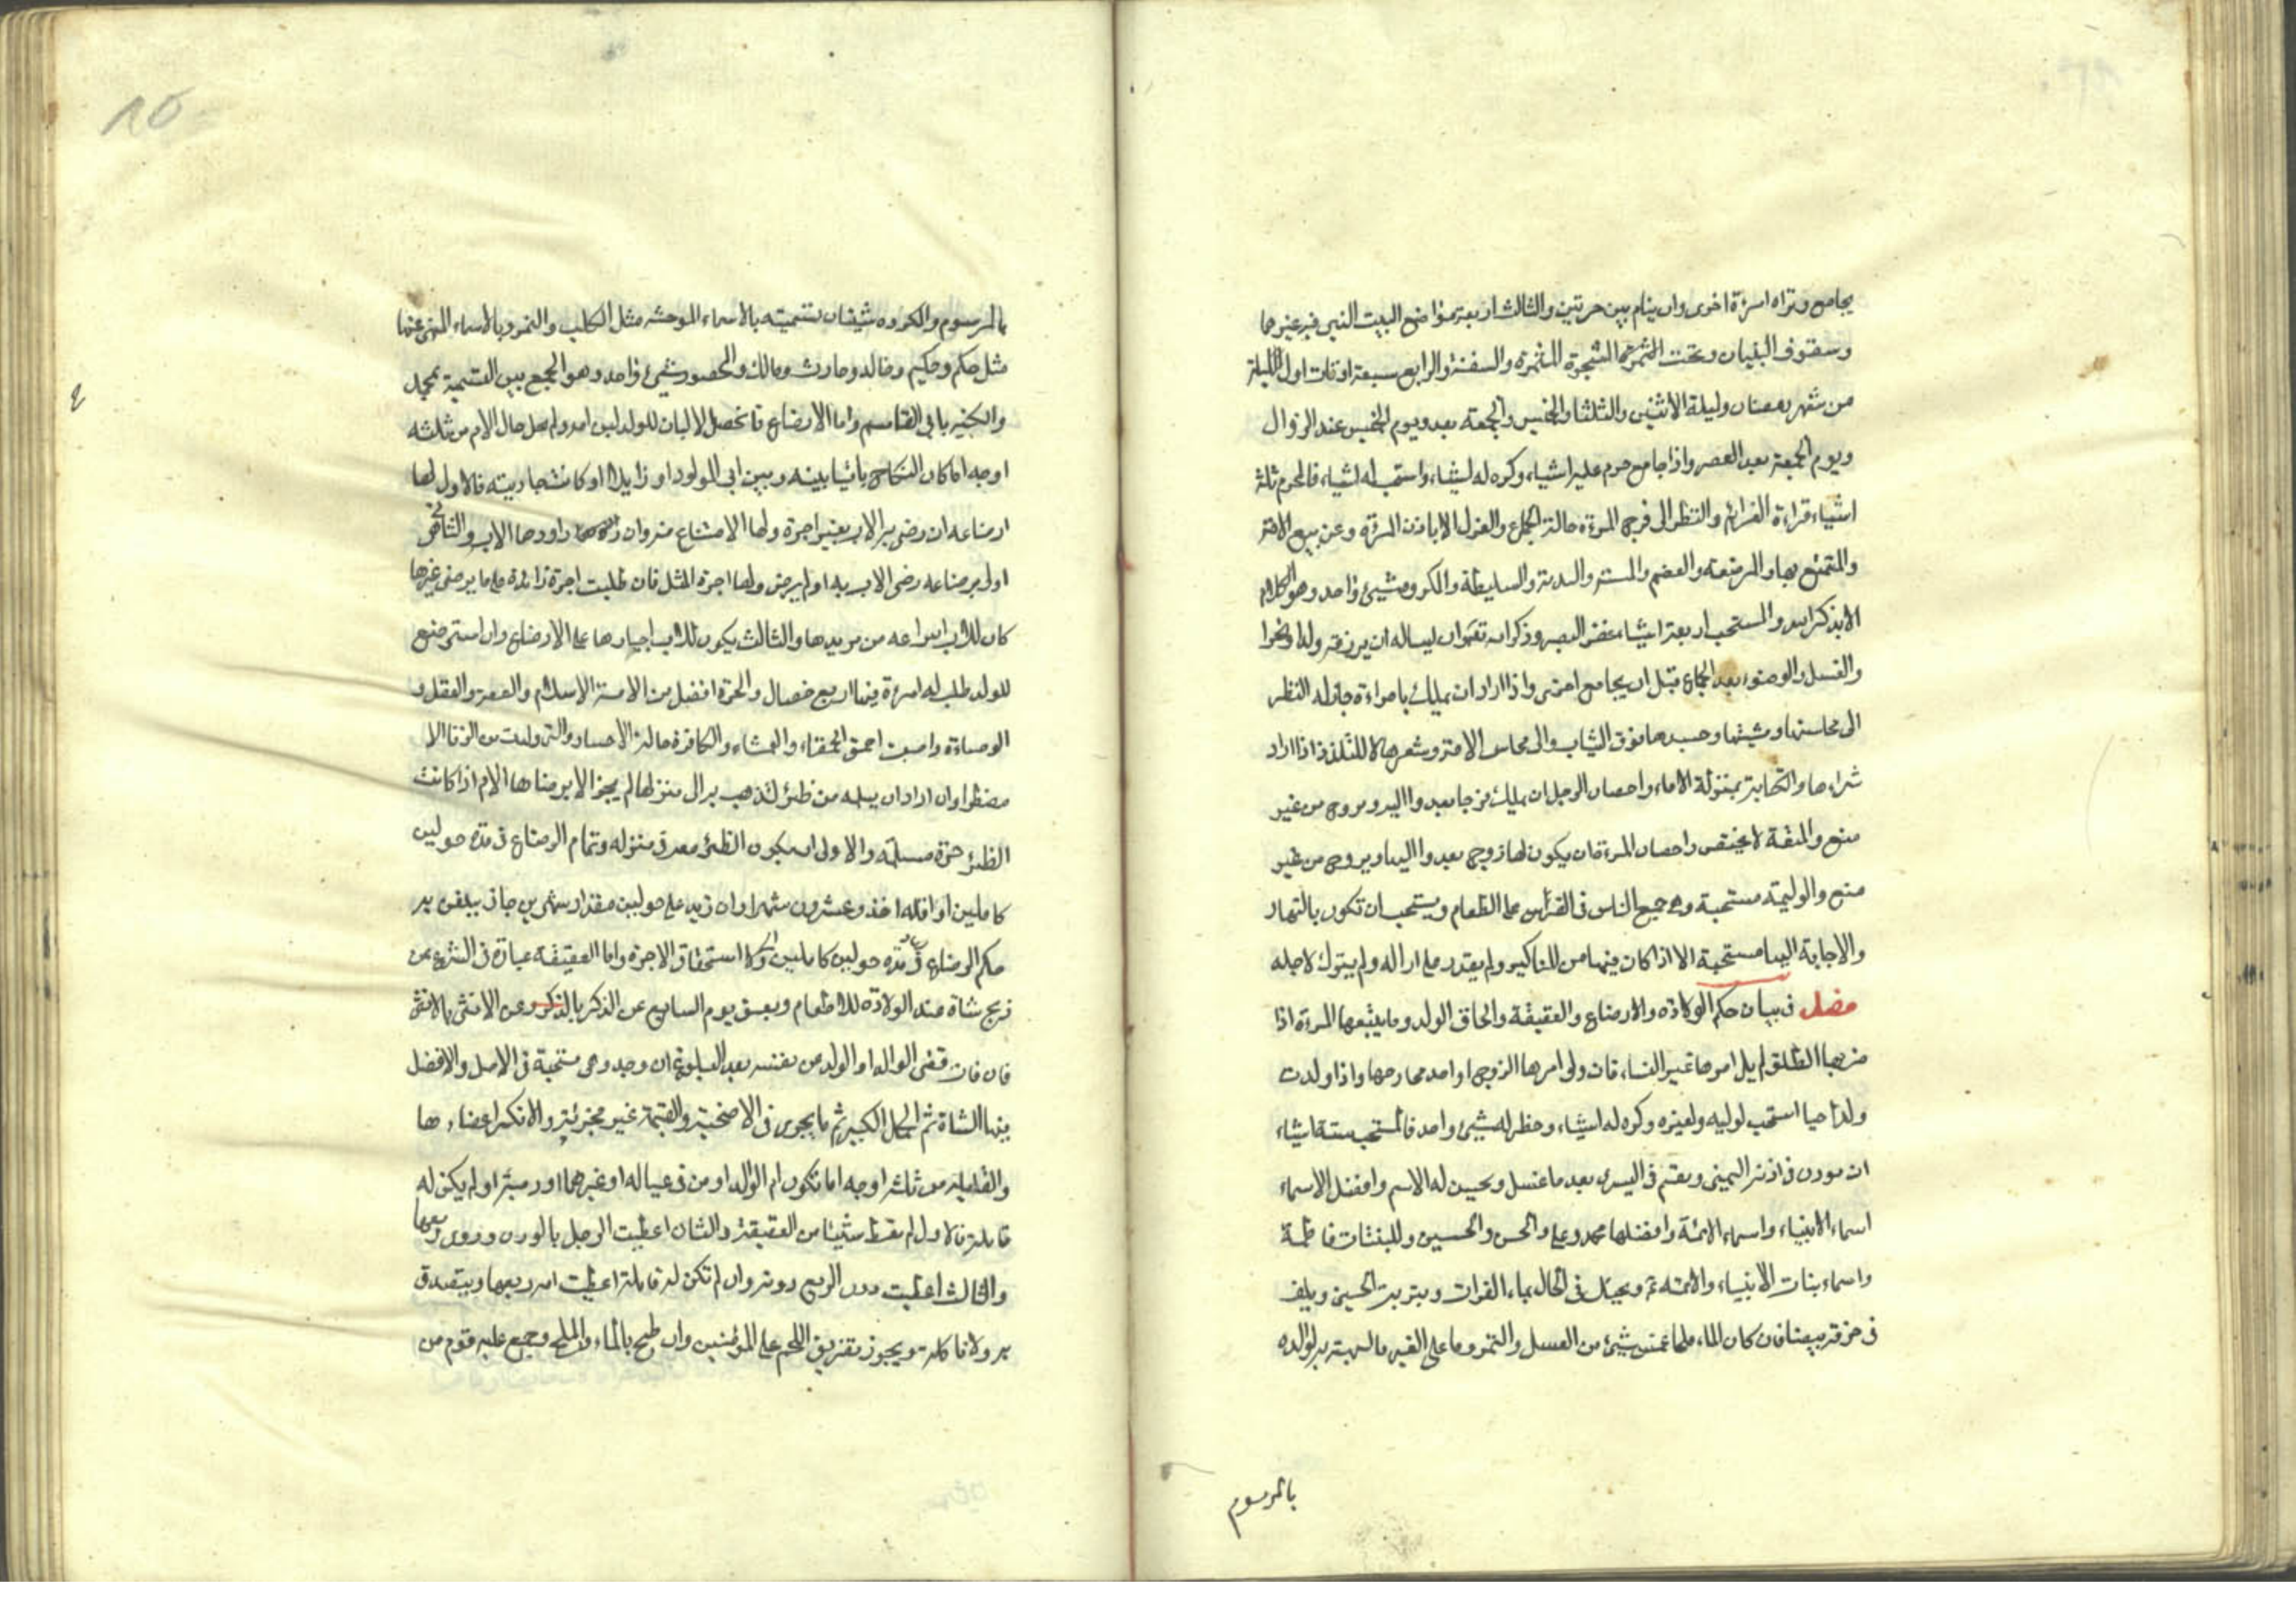 يجامع وتراه امرءة اخرى وان ينام بين حرتين والثالث اربعة مواضع البيت الذي فيه غيرهما
وسقوف البنيان وتحت الشجرة المثمرة والسفينة والرابع سبعة اوقات اول ليلة
من شهر رمضان وليلة الاثنين والثلثا والخميس والجمعة بعد ويوم الخميس عند الزوال
ويوم الجمعة بعد العصر واذا جامع حرم عليه اشياء وكره له اشياء واستحب له اشياء فالمحرم ثلثة
اشياء قراءة العزائم والنظر الى فرج المرءة حالة الجماع والعزل الا باذن المرءة وعن بيع الامة
والتمتع بها والمرضعة والعقيم والمسنة والبدية والسليطة والمكروه شيئ واحد وهو الكلام
الا بذكر الله والمستحب اربعة اشياء غض البصر وذكر الله تعالى وان يساله ان يرزقه ولدا
والغسل والوضوء بعد الجماع قبل ان يجامع اخرى واذا اراد ان يملك بامراءة جاز له النظر
الى محاسنها ومشيتها وجسدها فوق الثياب والى محاسن الامة وشعرها لا للتلذذ اذا اراد
شراءها والكتابية بمنزلة الاماء واحصان الرجل ان يملك فرجا يغدو اليه ويروح من غير
منع والمتعة لا يختص واحصان المرءة ان يكون لها زوج يغدو اليها ويروح من غير
منع والوليمة مستحبة وهي جمع الناس في العرس على الطعام ويستحب ان تكون بالنهار
والاجابة اليها مستحبة الا اذا كان فيها من المناكير ولم يقدر على ازاله ولم يترك لاجله
فصل في بيان حكم الولادة والارضاع والعقيقة والحاق الولد وما يتبعها المرءة اذا
ضربها الطلق لم يل امرها غير النساء فان ولى امرها الزوج او احد محارمها واذا ولدت
ولدا حيا استحب لوليه ولغيره وكره له اشياء وحظر له شيئ واحد فالمستحب ستة اشياء
ان يوذن في اذنه اليمنى ويقيم في اليسرى بعد ما غسل ويحسن له الاسم وافضل الاسماء
اسماء الانبياء واسماء الائمة وافضلها محمد وعلي والحسن والحسين وللبنات فاطمة
واسماء بنات الانبياء والائمة ع ويحنك في الحال بماء الفرات وبتربة الحسين ويلف
في خرقة بيضا فان كان الماء ملحا غمس شيئ من العسل والتمر وما على الغير ما يهنئ به لوالده
بالمرسوم
بالمرسوم والمكروه شيئان تسميته بالاسماء الموحشة مثل الكلب والنمر وبالاسماء المنهي عنها
مثل حكم وحكيم وخالد وحارث ومالك والمحظور شيئ واحد وهو الجمع بين التسمية بمحمد
والتكنية بابي القاسم واما الارضاع فافضل الالبان للولد لبن امه ولم يخل حال الام من ثلثة
اوجه اما كان النكاح باقيا بينه وبين ابي المولود او زايلا او كانت جاريته فالاول لها
ارضاعه ان رضى به الاب بغير اجرة ولها الامتناع منه وان اراد الاب والثاني هي
اولى برضاعه رضى الاب به او لم يرض ولها اجرة المثل فان طلبت اجرة زائدة على ما يرضى غيرها
كان للاب انتزاعه من يديها والثالث يكون للاب اجبارها على الارضاع وان استرضع
للولد طلب له امرءة فيها اربع خصال والحرة افضل من الامة الاسلام والعفة والعقل و
الوضاءة واجتنب الحمقاء والعمشاء والكافرة حالة الاختيار والتي ولدت من الزنا الا
مضطرا وان اراد ان يسلمه من ظئر لتذهب به الى منزلها لم يجز الا برضاها الام اذا كانت
الظئر حرة مسلمة والاولى ان يكون الظئر معه في منزله وتمام الرضاع في مدة حولين
كاملين او اقله احد وعشرون شهرا وان زيد على حولين مقدار شهرين جاز يتعلق به
حكم الرضاع في مدة حولين كاملين واستحقاق الاجرة واما العقيقة عبارة في الشرع عن
ذبح شاة عند الولادة للاطعام ويعق يوم السابع عن الذكر بالذكر وعن الانثى بالانثى
فان فات قضى الوالد او الولد عن نفسه بعد البلوغ ان وجد وهي مستحبة في الاصل والافضل
فيها الشاة ثم الجمل الكبير ثم ما يجوز في الاضحية والقيمة غير مجزئة ولا تكسر اعضاءها
والقابلة من ثلثة اوجه اما تكون ام الوالد او من في عياله او غيرهما او لم يكن له
قابلة فالاول لم تعط شيئا من العقيقة والثان اعطيت الرجل بالورك وروي ربعها
والثالث اعطيت الربع وان لم تكن له قابلة اعطيت امه ربعها ويتصدق
به ولا تاكله ويجوز تفريق اللحم على المؤمنين وان طبخ بالماء والملح وجمع عليه قوم من